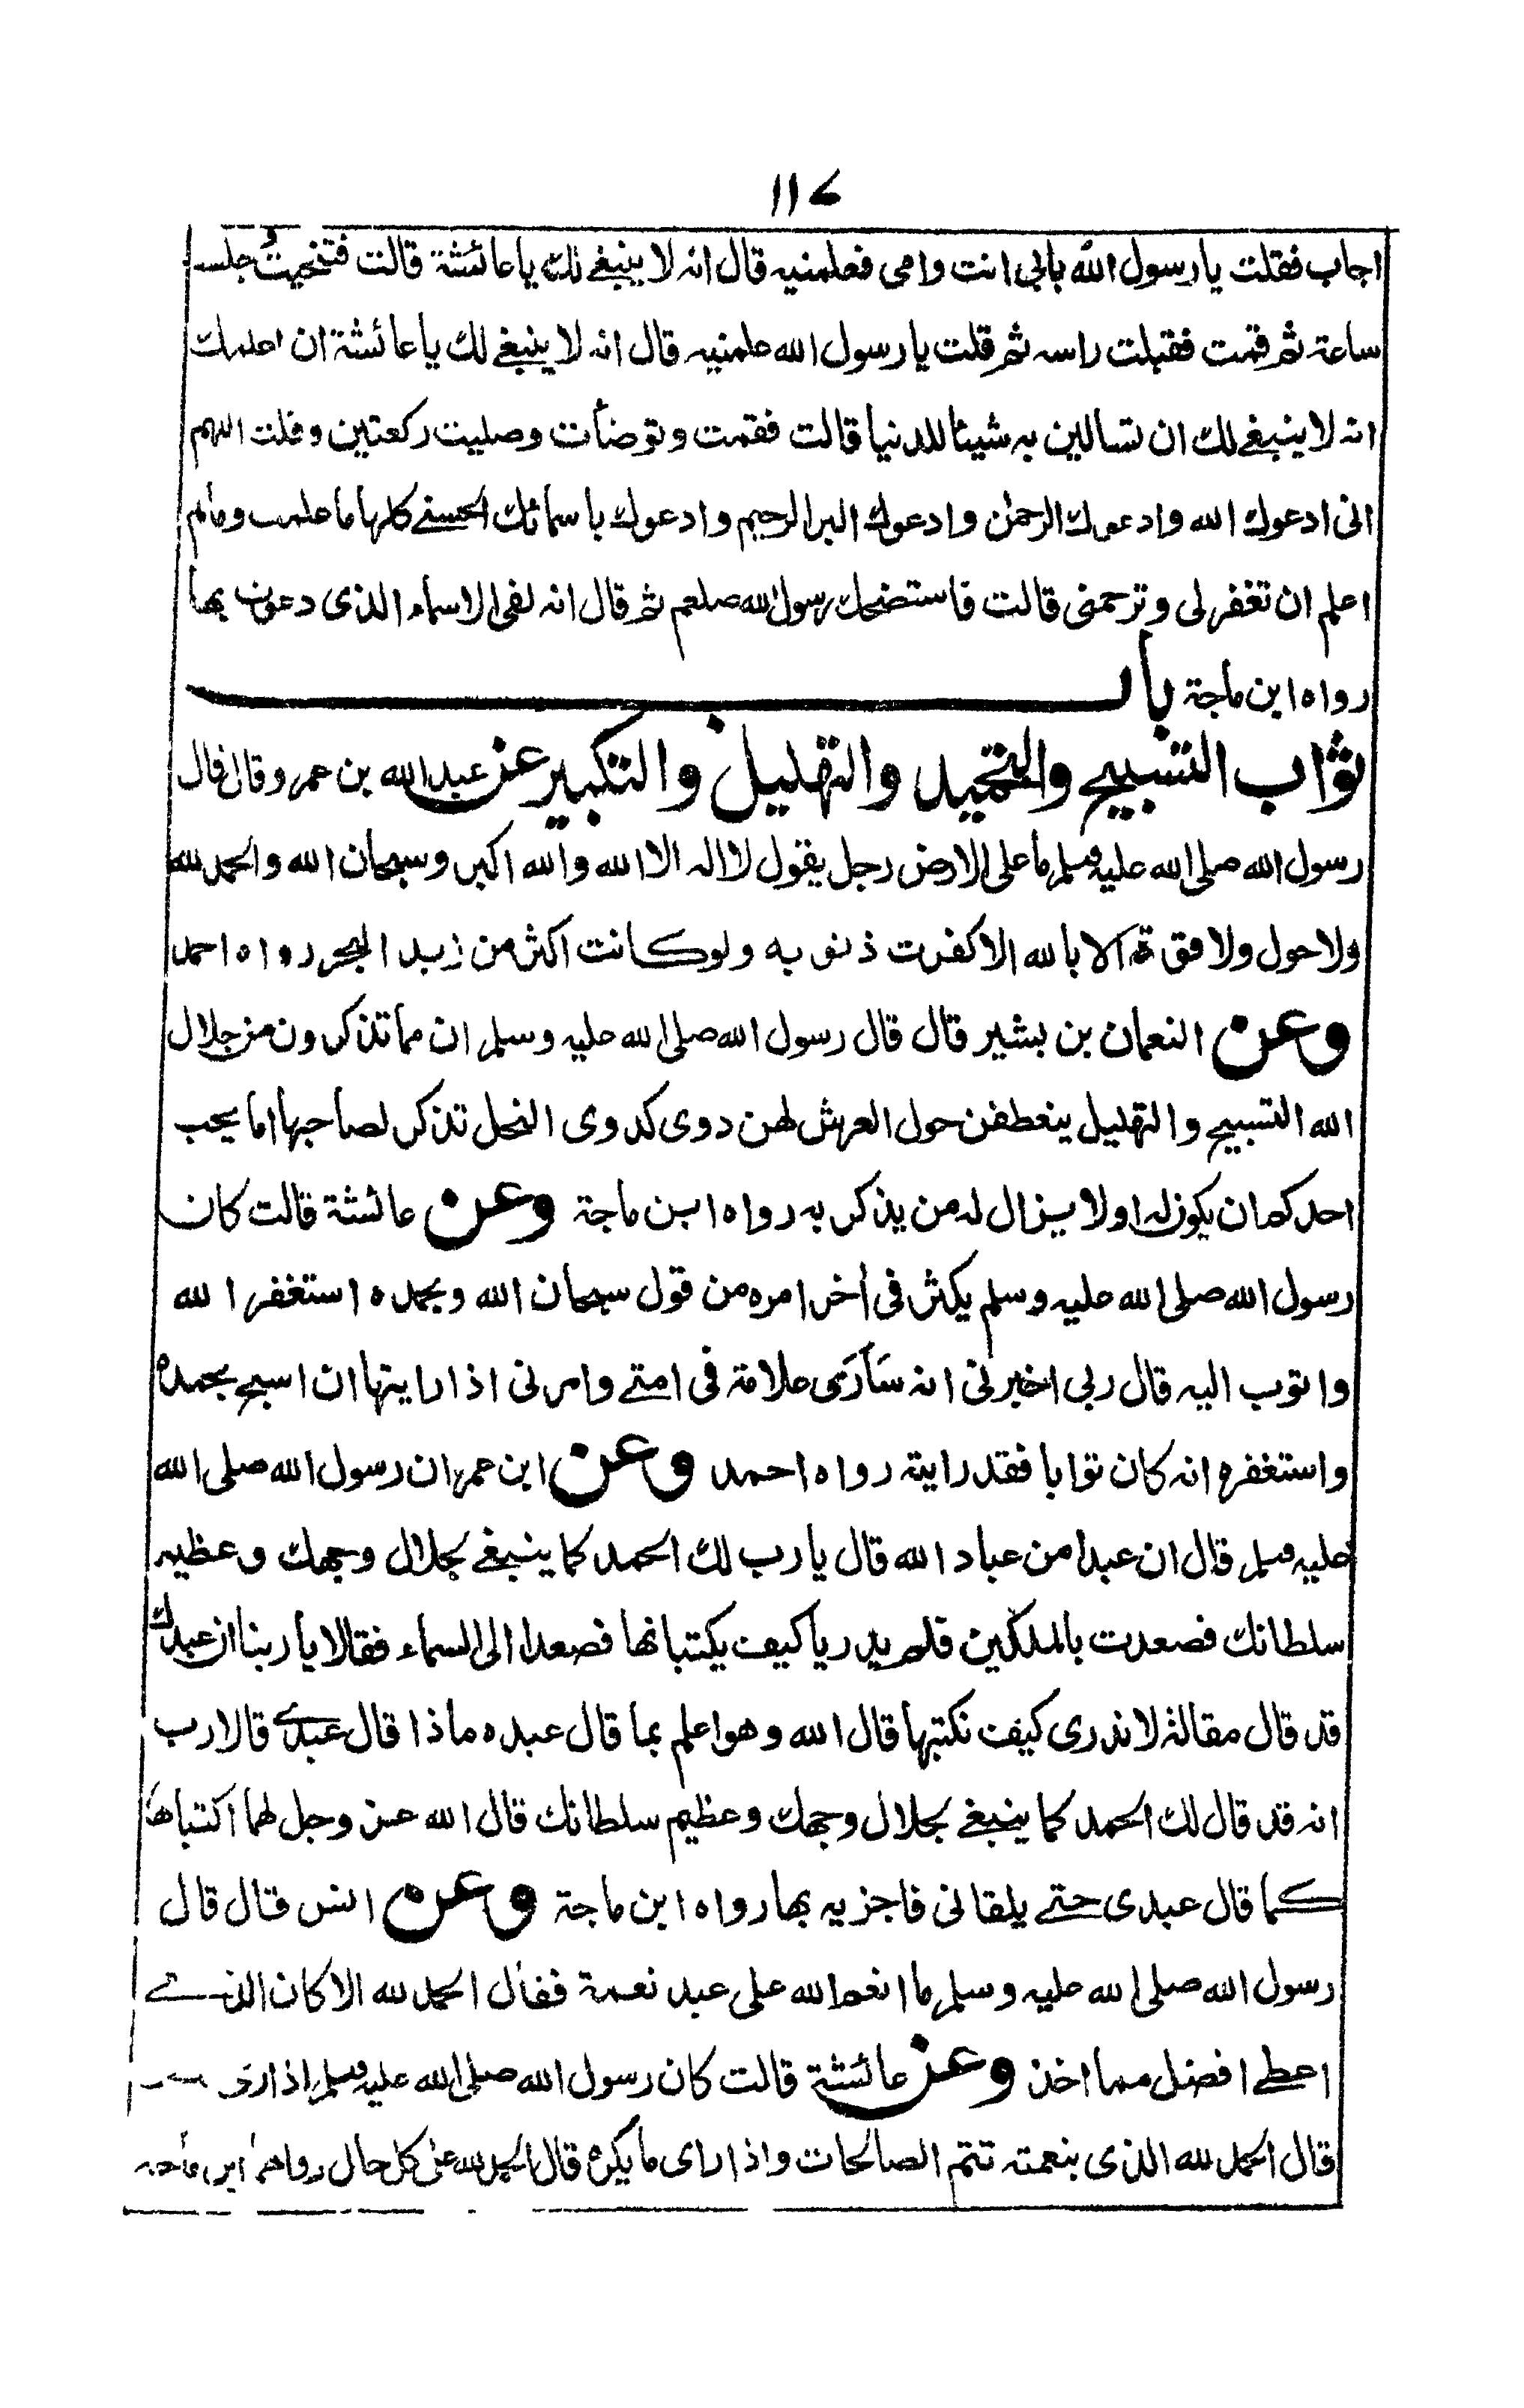 ١١٧
اجاب فقلت يا رسول الله بابى انت وامى فعلمنيه قال انه لا ينبغى لك يا عائشة قالت فتنحيت وجلست
ساعة ثم قمت فقبلت راسه ثم قلت يا رسول الله علمنيه قال انه لا ينبغى لك يا عائشة ان اعلمك
انه لا ينبغى لك ان تسالين به شيئا للدنيا قالت فقمت وتوضأت وصليت ركعتين وقلت اللهم
انى ادعوك الله وادعوك الرحمن وادعوك البر الرحيم وادعوك باسمائك الحسنى كلها ما علمت وما لم
اعلم ان تغفر لى وترحمنى قالت فاستضحك رسول الله صلعم ثم قال انه لفى الاسماء الذى دعوت بها
رواه ابن ماجة باب
ثواب التسبيح والتحميد والتهليل والتكبير عن عبد الله بن عمرو قال قال
رسول الله صلى الله عليه وسلم ما على الارض رجل يقول لا اله الا الله والله اكبر وسبحان الله والحمد لله
ولا حول ولا قوة الا بالله الا كفرت ذنوبه ولو كانت اكثر من زبد البحر رواه احمد
وعن النعمان بن بشير قال قال رسول الله صلى الله عليه وسلم ان مما تذكرون من جلال
الله التسبيح والتهليل ينعطفن حول العرش لهن دوى كدوى النحل تذكر لصاحبها اما يحب
احدكم ان يكون له اولا يزال له من يذكر به رواه ابن ماجة وعن عائشة قالت كان
رسول الله صلى الله عليه وسلم يكثر فى أخر امره من قول سبحان الله وبحمده استغفر الله
واتوب اليه قال ربى اخبرنى انه سَأَرَى علامة فى امتى وامرنى اذا رايتها ان اسبح بحمده
واستغفره انه كان توابا فقد رايته رواه احمد وعن ابن عمر ان رسول الله صلى الله
عليه وسلم قال ان عبدا من عباد الله قال يا رب لك الحمد كما ينبغى لجلال وجهك وعظيم
سلطانك فصعدت بالملكين فلم يدريا كيف يكتبانها فصعدا الى السماء فقالا يا ربنا ان عبدك
قد قال مقالة لا ندرى كيف نكتبها قال الله وهو اعلم بما قال عبده ماذا قال عبدى قالا رب
انه قد قال لك الحمد كما ينبغى لجلال وجهك وعظيم سلطانك قال الله عز وجل لهما اكتباها
كما قال عبدى حتى يلقانى فاجزيه بها رواه ابن ماجة وعن انس قال قال
رسول الله صلى الله عليه وسلم ما انعم الله على عبد نعمة فقال الحمد لله الا كان الذى
اعطى افضل مما اخذ وعن عائشة قالت كان رسول الله صلى الله عليه وسلم اذا راى
قال الحمد لله الذى بنعمته تتم الصالحات واذا راى ما يكره قال الحمد لله على كل حال رواهما ابن ماجة